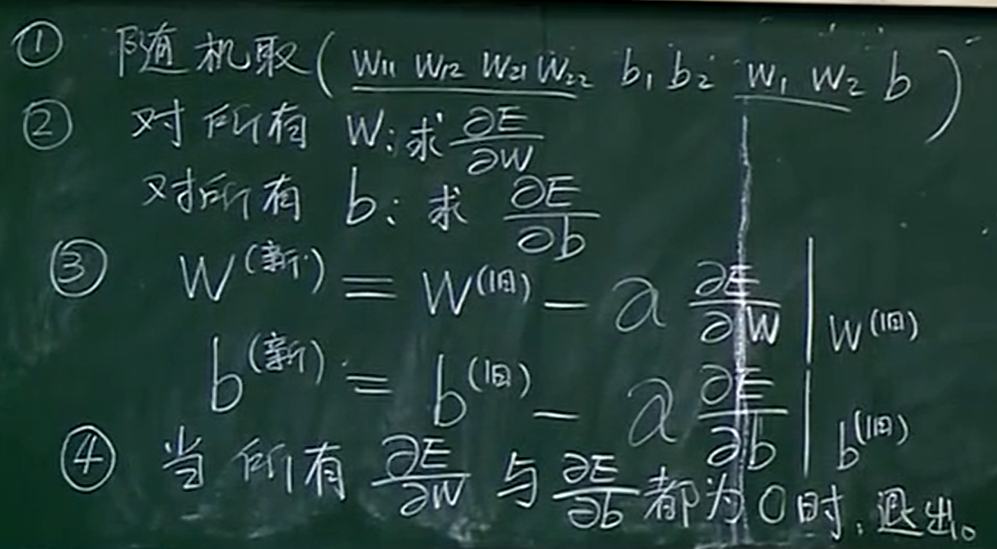 ① 随机取(w₁₁ w₁₂ w₂₁ w₂₂ b₁ b₂ w₁ w₂ b)
② 对所有 W:求 ∂E/∂W
对所有 b:求 ∂E/∂b
③ W^(新) = W^(旧) - a ∂E/∂W | W^(旧)
b^(新) = b^(旧) - a ∂E/∂b | b^(旧)
④ 当所有 ∂E/∂W 与 ∂E/∂b 都为0时,退出。